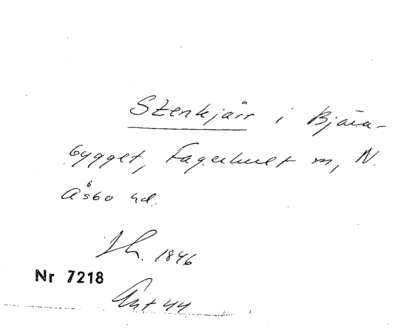 Stenkjärr i Bjära-
bygget, Fagerhult m, N.
Åsbo hd.
1846
Nr 7218
Ant 44